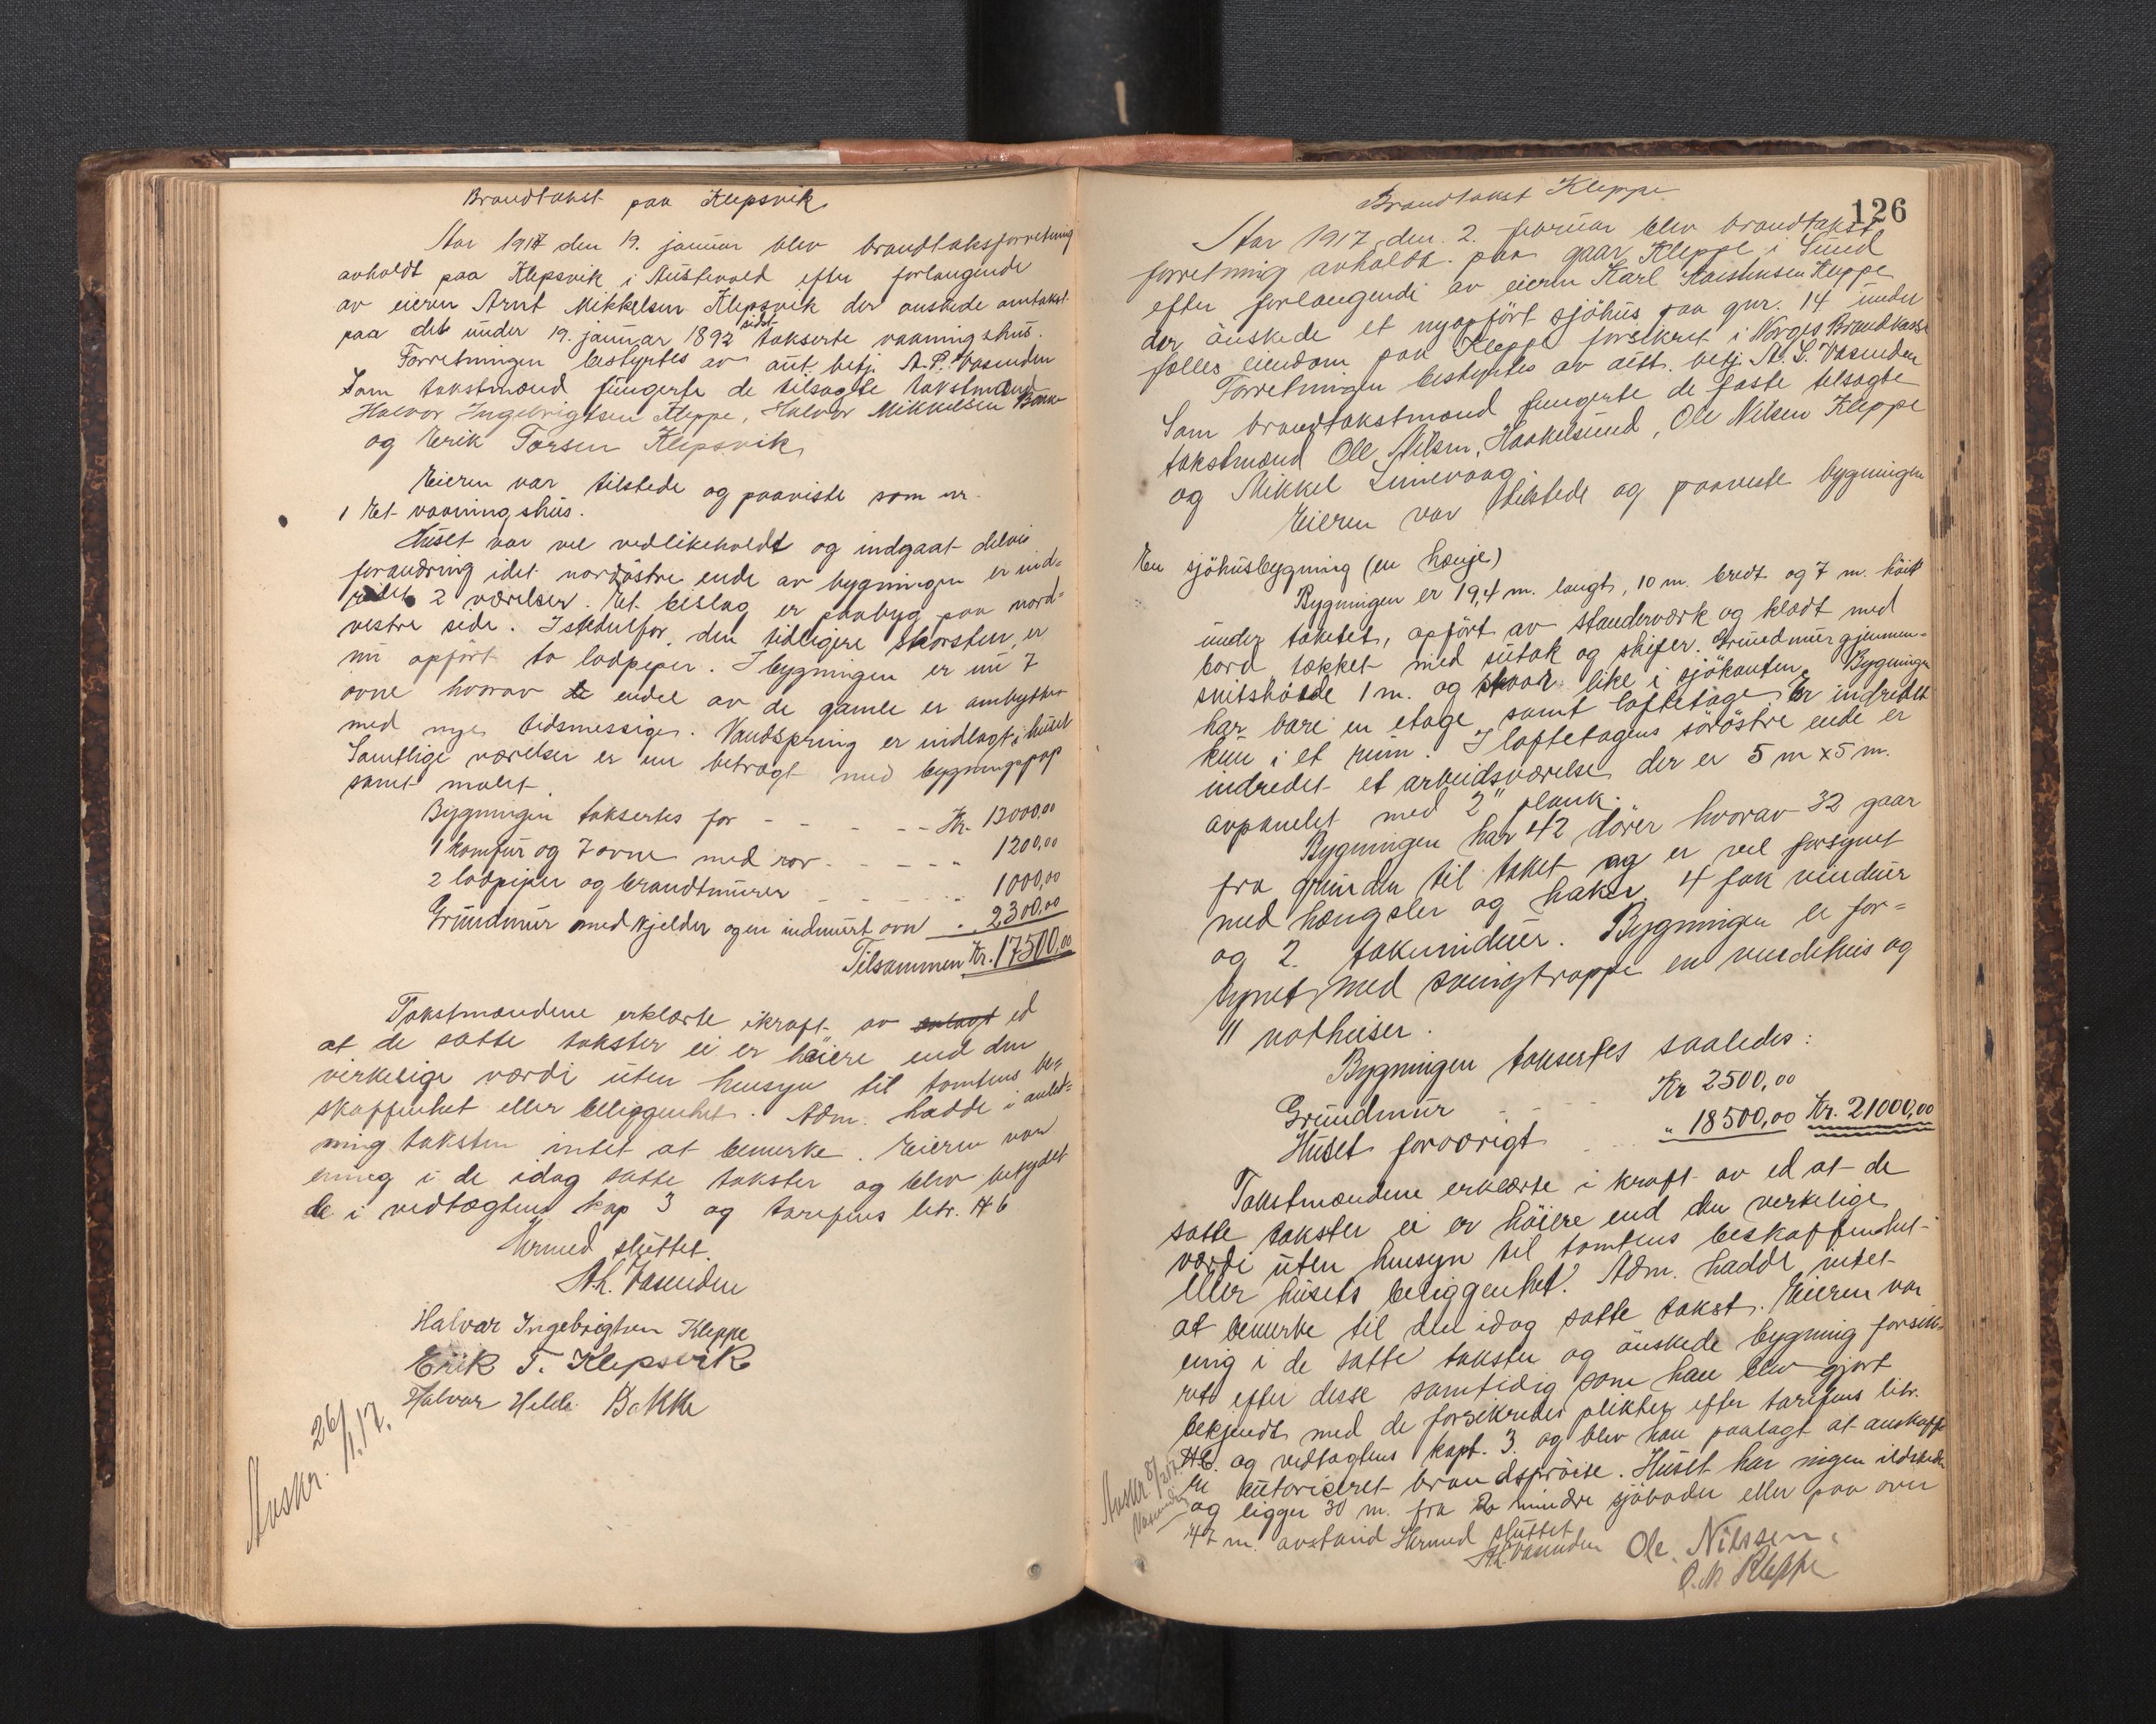 Brandtakst paa Klepsvik
Aar 1917 den 19. januar blev brandtaksforretning
avholdt paa Klepsvik i Austevold efter forlangende
av eieren Arnt Mikkelsen Klepsvik der ønskede omtakst
paa det under 19. januar 1892 sidst takserte vaaningshus.
Forretningen bestyrtes av aut. betj. A. L. Vasenden
Som takstmænd fungerte de tilsagte takstmænd
Halvor Ingebrigtsen Kleppe, Halvor Mikkelsen Bakke
og Erik Torsen Klepsvik
Eieren var tilstede og paaviste som er
1 Et vaaningshus.
Huset var vel vedlikeholdt og indgaat delvis
forandring idet nordøstre ende av bygningen er ind=
redet 2 værelser. Et bislag er paabyg paa nord=
vestre side. Istedenfor den tidligere skorsten er
nu opført to lodpiper. I bygningen er nu 7
ovne hvorav endel av de gamle er ombyttet
med nye tidsmessige. Vandspring er indlagt i huset
Samtlige værelser er nu betragt med bygningspap
samt malet.
Bygningen taksertes for - - - - - - Kr. 13000,00
1 komfur og 7 ovne med rør - - - - - " 1200,00
2 lodpiper og brandtmurer - - - - - " 1000,00
Grundmur med kjelder og en indmurt ovn - " 2300,00
Tilsammen Kr. 17500,00
Takstmændene erklærte ikraft av avlagt ed
at de satte takster ei er høiere end den
virkelige værdi uten hensyn til tomtens be=
skaffenhet eller beliggenhet. Adm. hadde i anled=
ning taksten intet at bemerke. Eieren var
enig i de idag satte takster og blev betydet
de i vedtægtens kap 3 og tarifens litr. H 6
Hermed sluttet.
A. L. Vasenden
Halvar Ingebrigtsen Kleppe
Erik T. Klepsvik
Halvar Helde Bakke
Avskr. 26/1.17.
126
Brandtakst Kleppe
Aar 1917 den 2. februar blev brandtakst
forretning avholdt paa gaar Kleppe i Sund
efter forlangende av eieren Karl Karstensen Kleppe
der ønskede et nyopført sjøhus paa gnr. 14 under
fælles eiendom paa Kleppe forsikret i Norges Brandkasse
Forretningen bestyrtes av autt. betj. A. L. Vasenden
Som brandtakstmænd fungerte de faste tilsagte
takstmænd Ole Nilsen, Haakelsund, Ole Nilsen Kleppe
og Mikkel Limevaag.
Eieren var tilstede og paaviste bygningen
En sjøhusbygning (en hænje)
Bygningen er 19,4 m. langt, 10 m. bredt og 7 m. høit
under taket, opført av standerværk og klædt med
bord tækket med sutak og skifer. Grundmur gjennem-
snitshøide 1 m. og staar like i sjøkanten. Bygningen
har bare en etage samt loftetage. Er indredet
kun i et rum. I loftetagens sørøstre ende er
indredet et arbeidsværelse der er 5 m x 5 m.
avpanelet med 2" plank.
Bygningen har 42 dører hvorav 32 gaar
fra grunden til taket og er vel forsynet
med hængsler og haker. 4 fak vinduer
og 2 takvinduer. Bygningen er for=
synet med svingtrappe en vindehuis og
11 nothuiser.
Bygningen taksertes saaledes:
Grundmur - - - Kr 2500,00
Huset forøvrigt - - " 18500,00 Kr. 21000,00
Takstmændene erklærte i kraft av ed at de
satte takster ei er høiere end den virkelige
værdi uten hensyn til tomtens beskaffenhet
eller husets beliggenhet. Adm. hadde intet
at bemerke til den idag satte takst. Eieren var
enig i de satte takster og ønskede bygning forsik-
ret efter disse samtidig som han blev gjort
bekjendt med de forsikredes plikter efter tarifens litr.
H6. og vedtægtens kapt. 3. og blev han paalagt at anskaffe
en autoriceret brandsprøite. Huset har ingen ildsteder
og ligger 30 m. fra 2 mindre sjøboder eller paa over
47 m. avstand Hermed sluttet
A L Vasenden Ole Nilssen
O. N Kleppe
Avskr. 8/2 17.
Vasenden